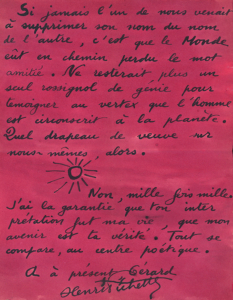 Si jamais l'un de nous venait
à supprimer son nom du nom
de l'autre, c'est que le Monde
eût en chemin perdu le mot
amitié. Ne resterait plus un
seul rossignol de génie pour
témoigner au vertex que l'homme
est circonscrit à la planète.
Quel drapeau de veuve sur
nous-mêmes, alors.
Non, mille fois mille.
J'ai la garantie que ton inter
prétation fut ma vie, que mon
avenir est ta vérité. Tout se
compare, au centre poétique.
A à présent Gérard
Henri Pichette